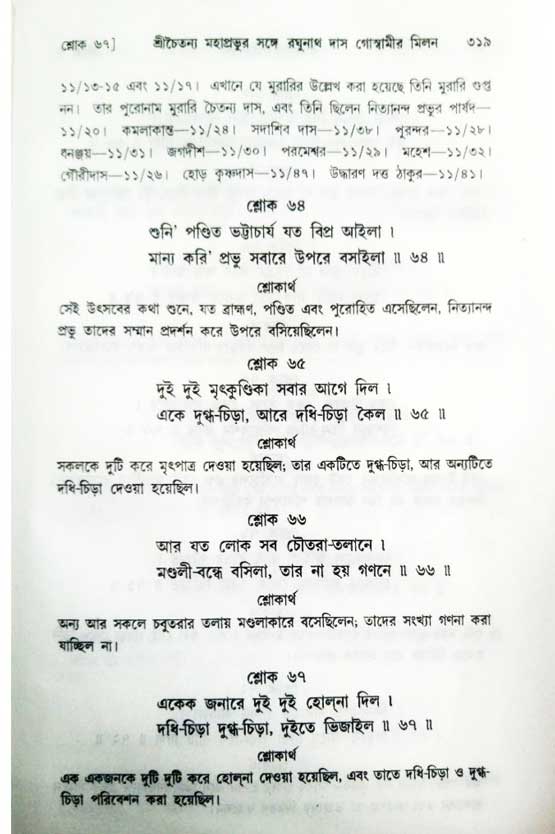 শ্লোক ৬৭] শ্রীচৈতন্য মহাপ্রভুর সঙ্গে রঘুনাথ দাস গোস্বামীর মিলন ৩১৯
১১/১৩-১৫ এবং ১১/১৭। এখানে যে মুরারির উল্লেখ করা হয়েছে তিনি মুরারি গুপ্ত
নন। তার পুরোনাম মুরারি চৈতন্য দাস, এবং তিনি ছিলেন নিত্যানন্দ প্রভুর পার্ষদ—
১১/২০। কমলাকান্ত—১১/২৪। সদাশিব দাস—১১/৩৮। পুরন্দর—১১/২৮।
ধনঞ্জয়—১১/৩১। জগদীশ—১১/৩০। পরমেশ্বর—১১/২৯। মহেশ—১১/৩২।
গৌরীদাস—১১/২৬। হোড় কৃষ্ণদাস—১১/৪৭। উদ্ধারণ দত্ত ঠাকুর—১১/৪১।
শ্লোক ৬৪
শুনি' পণ্ডিত ভট্টাচার্য যত বিপ্র আইলা ।
মান্য করি' প্রভু সবারে উপরে বসাইলা ॥ ৬৪ ॥
শ্লোকার্থ
সেই উৎসবের কথা শুনে, যত ব্রাহ্মণ, পণ্ডিত এবং পুরোহিত এসেছিলেন, নিত্যানন্দ
প্রভু তাদের সম্মান প্রদর্শন করে উপরে বসিয়েছিলেন।
শ্লোক ৬৫
দুই দুই মৃৎকুণ্ডিকা সবার আগে দিল ।
একে দুগ্ধ-চিড়া, আরে দধি-চিড়া কৈল ॥ ৬৫ ॥
শ্লোকার্থ
সকলকে দুটি করে মৃৎপাত্র দেওয়া হয়েছিল; তার একটিতে দুগ্ধ-চিড়া, আর অন্যটিতে
দধি-চিড়া দেওয়া হয়েছিল।
শ্লোক ৬৬
আর যত লোক সব চৌতরা-তলানে ।
মণ্ডলী-বন্ধে বসিলা, তার না হয় গণনে ॥ ৬৬ ॥
শ্লোকার্থ
অন্য আর সকলে চবুতরার তলায় মণ্ডলাকারে বসেছিলেন; তাদের সংখ্যা গণনা করা
যাচ্ছিল না।
শ্লোক ৬৭
একেক জনারে দুই দুই হোল্‌না দিল ।
দধি-চিড়া দুগ্ধ-চিড়া, দুইতে ভিজাইল ॥ ৬৭ ॥
শ্লোকার্থ
এক একজনকে দুটি দুটি করে হোল্‌না দেওয়া হয়েছিল, এবং তাতে দধি-চিড়া ও দুগ্ধ-
চিড়া পরিবেশন করা হয়েছিল।